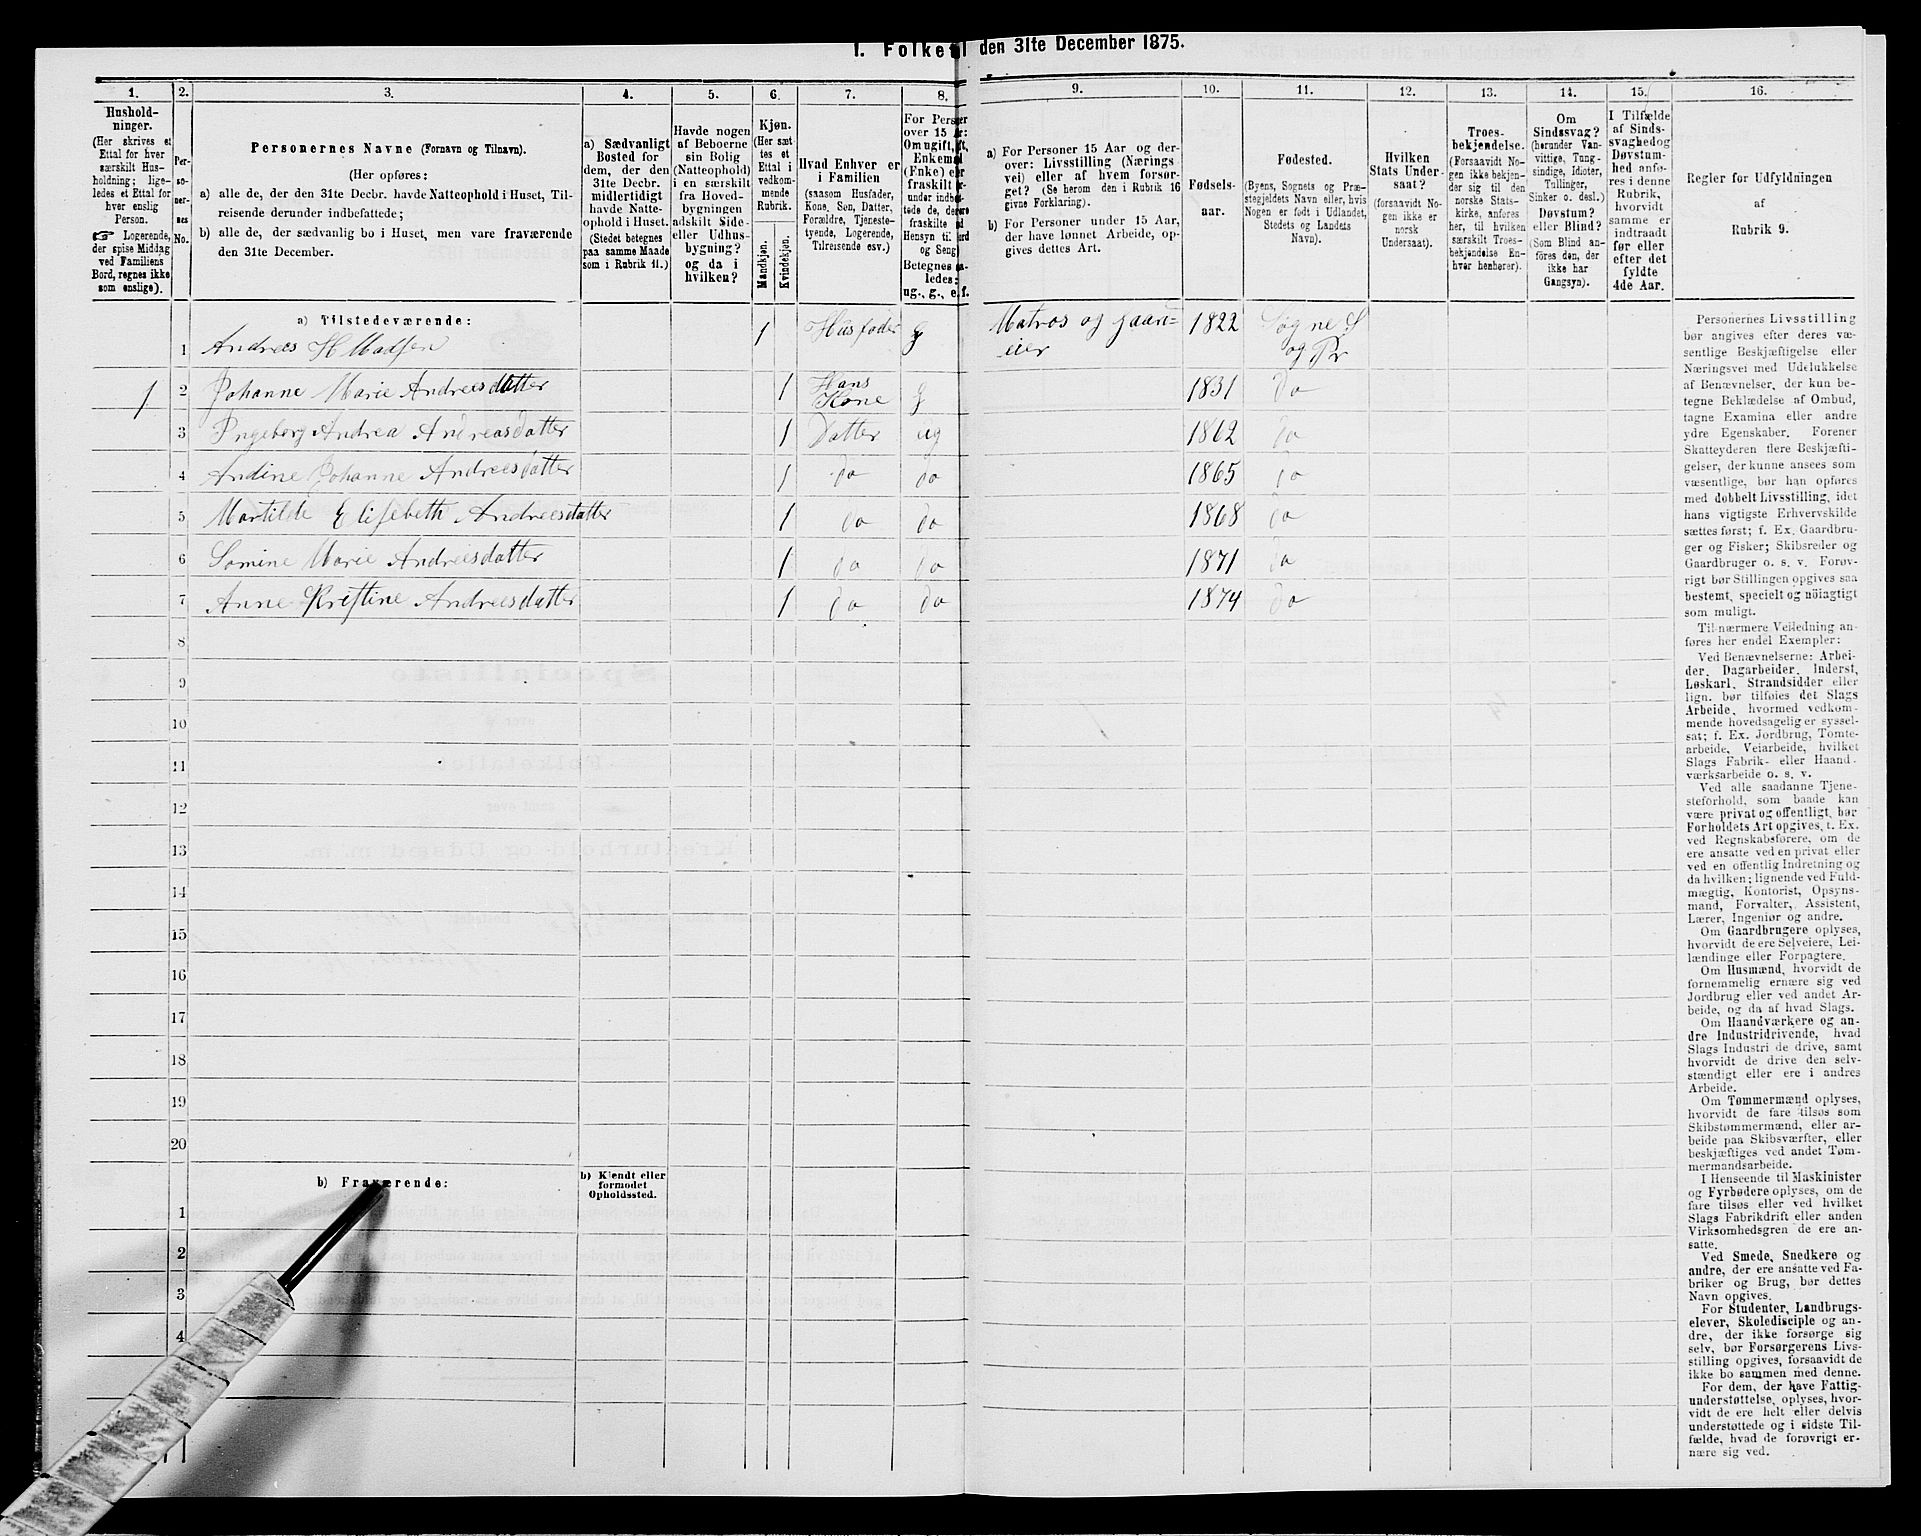 1. Folketal den 31te December 1875.
1.
Hushold-
ninger.
(Her skrives et
Ettal for hver
særskilt Hus-
holdning; lige-
ledes et Ettal for
hver enslig
Person.
☞ Logerende,
der spise Middag
ved Familiens
Bord, regnes ikke
som enslige).
2.
Per-
so-
ner-
nes
No.
3.
Personernes Navne (Fornavn og Tilnavn).
(Her opføres:
a) alle de, der den 31te Decbr. havde Natteophold i Huset, Til-
reisende derunder indbefattede;
b) alle de, der sædvanlig bo i Huset, men vare fraværende
den 31te December.
4.
a) Sædvanligt
Bosted for
dem, der den
31te Decbr.
midlertidigt
havde Natte-
ophold i Huset.
(Stedet betegnes
paa samme Maade
som i Rubrik 11.)
5.
Havde nogen
af Beboerne
sin Bolig
(Natteophold)
i en særskilt
fra Hoved-
bygningen
adskilt Side-
eller Udhus-
bygning?
og da i
hvilken?
6.
Kjøn.
(Her sæt
tes et
Ettal i
vedkom-
mende
Rubrik.
Mandkjøn.
Kvindekjøn.
7.
Hvad Enhver er
i Familien
(saasom Husfader,
Kone, Søn, Datter,
Forældre, Tjeneste-
tyende, Logerende,
Tilreisende osv.)
8.
For Perso
over 15 A
Om ugift,
Enkema
(Enke) e
fraskilt
under indb
tede de, d
fraskilte
Hensyn til
og Seng
Betegnes
ledes:
ug., g., e., f.
9.
a) For Personer 15 Aar og der-
over: Livsstilling (Nærings
vei) eller af hvem forsør-
get? (Se herom den i Rubrik 16
givne Forklaring).
b) For Personer under 15 Aar,
der have lønnet Arbeide, op-
gives dettes Art.
10.
Fødsels-
aar.
11.
Fødested.
(Byens, Sognets og Præ-
stegjeldets Navn eller, hvis
Nogen er født i Udlandet,
Stedets og Landets
Navn).
12.
Hvilken
Stats Under-
saat?
(forsaavidt No-
gen ikke er
norsk
Undersaat).
13.
Troes-
bekjendelse.
(Forsaavidt No-
gen ikke bekjen-
der sig til den
norske Stats-
kirke, anføres
her, til hvilken
særskilt Troes-
bekjendelse En-
hver henhører).
14.
Om
Sindssvag?
(herunder Van-
vittige, Tung-
sindige, Idioter,
Tullinger,
Sinker o. desl.)
Døvstum?
eller Blind?
(Som Blind an-
føres den, der
ikke har
Gangsyn).
15.
I Tilfælde
af Sinds-
svaghed og
Døvstum-
hed anfø-
res i denne
Rubrik,
hvorvidt
samme er
indtraadt
før eller
efter det
fyldte
4de Aar.
16.
Regler for Udfyldningen
af
Rubrik 9.
a) Tilstedeværende:
1 Andreas H Madsen 1 Husfader g Matros og gaard= eier 1822 Søgne S og Pr
1
2 Johanne Marie Andreesdatter 1 Hans Kone g 1831 do
3 Ingeborg Andrea Andreasdatter 1 Datter ug 1862 do
4 Andine Johanne Andreesdatter 1 do do 1865 do
5 Martilde Elisebeth Andreesdatter 1 do do 1868 do
6 Samine Marie Andreesdatter 1 do do 1871 do
7 Anne Kristine Andreesdatter 1 do do 1874 do
8
9
10
11
12
13
14
15
16
17
18
19
20
b) Fraværende:
b) Kjendt eller
formodet
Opholdssted.
1
2
3
4
Personernes Livsstilling
bør angives efter deres væ-
sentlige Beskjæftigelse eller
Næringsvei med Udelukkelse
af Benævnelser, der kun be-
tegne Beklædelse af Ombud,
tagne Examina eller andre
ydre Egenskaber. Forener
Skatteyderen flere Beskjæfti-
gelser, der kunne ansees som
væsentlige, bør han opføres
med dobbelt Livsstilling, idet
hans vigtigste Erhvervskilde
sættes først; f. Ex. Gaardbru-
ger og Fisker; Skibsreder og
Gaardbruger o. s. v. Forøv-
rigt bør Stillingen opgives saa
bestemt, specielt og nöiagtigt
som muligt.
Til nærmere Veiledning an-
føres her endel Exempler:
Ved Benævnelserne: Arbei-
der, Dagarbeider, Inderst,
Løskarl, Strandsidder eller
lign. bør tilføies det Slags
Arbeide, hvormed vedkom-
mende hovedsagelig er syssel-
sat; f. Ex. Jordbrug, Tomte-
arbeide, Veiarbeide, hvilket
Slags Fabrik- eller Haand-
værksarbeide o. s. v.
Ved alle saadanne Tjene-
steforhold, som baade kan
være privat og offentligt, bør
Forholdets Art opgives, f. Ex.
ved Regnskabsførere, om de
ere ansatte ved en privat eller
ved en offentlig Indretning og
da hvilken; lignende ved Fuld-
mægtig, Kontorist, Opsyns-
mand, Forvalter, Assistent,
Lærer, Ingeniør og andre.
Om Gaardbrugere oplyses,
hvorvidt de ere Selveiere, Lei-
lændinge eller Forpagtere.
Om Husmænd, hvorvidt de
fornemmelig ernære sig ved
Jordbrug eller ved andet Ar-
beide, og da af hvad Slags.
Om Haandværkere og an-
dre Industridrivende, hvad
Slags Industri de drive, samt
hvorvidt de drive den selv-
stændigt eller ere i andres
Arbeide.
Om Tømmermænd oplyses,
hvorvidt de fare tilsøs som
Skibstømmermænd, eller ar-
beide paa Skibsværfter, eller
beskjæftiges ved andet Tøm-
mermandsarbeide.
I Henseende til Maskinister
og Fyrbødere oplyses, om de
fare tilsøs eller ved hvilket
Slags Fabrikdrift eller anden
Virksomhedsgren de ere an-
satte.
Ved Smede, Snedkere og
andre, der ere ansatte ved Fa-
briker og Brug, bør dettes
Navn opgives.
For Studenter, Landbrugs-
elever, Skoledisciple og an-
dre, der ikke forsørge sig
selv, bør Forsørgerens Livs-
stilling opgives, forsaavidt de
ikke bo sammen med denne.
For dem, der have Fattig-
understøttelse, oplyses, hvor-
vidt de ere helt eller delvis
understøttede og i sidste Til-
fælde, hvad de forøvrigt er-
nære sig ved.